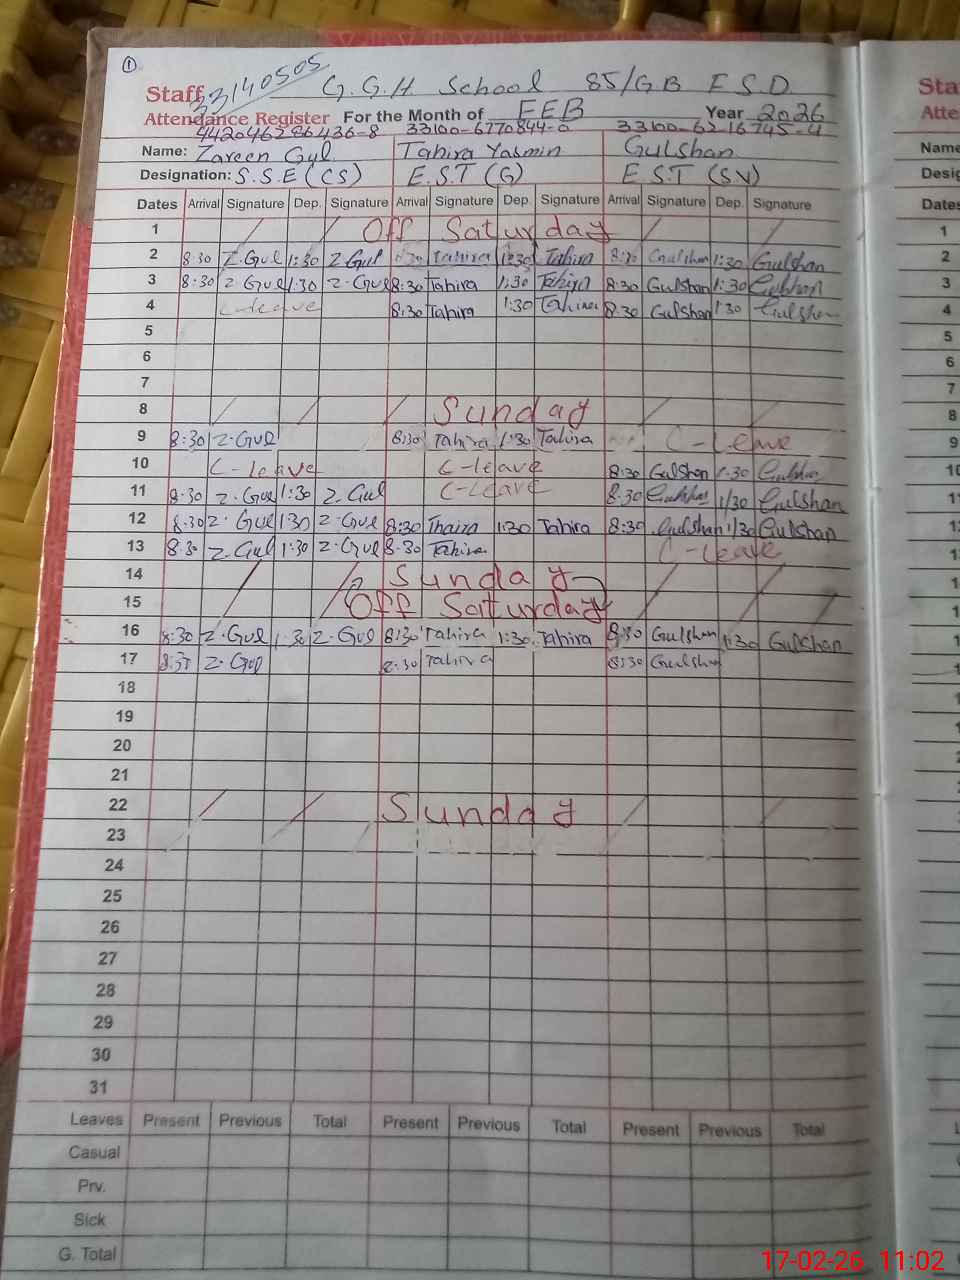 ①
33140505
Staff G.G.H School 85/GB F.S.D
Attendance Register For the Month of FEB Year 2026
442046286436-8 33100-6770844-0 33100-6216745-4
Name: Zareen Gul Tahira Yasmin Gulshan
Designation: S.S.E (CS) E.S.T (G) E.S.T (S.V)
Dates Arrival Signature Dep. Signature Arrival Signature Dep. Signature Arrival Signature Dep. Signature
1 Off Saturday
2 8:30 Z.Gul 1:30 Z Gul 8:30 Tahira 1:30 Tahira 8:30 Gulshan 1:30 Gulshan
3 8:30 Z Gul 1:30 Z-Gul 8:30 Tahira 1:30 Tahira 8:30 Gulshan 1:30 Gulshan
4 C-leave 8:30 Tahira 1:30 Tahira 8:30 Gulshan 1:30 Gulshan
5
6
7
8 Sunday
9 8:30 Z.Gul 8:30 Tahira 1:30 Tahira C-Leave
10 C-leave C-leave 8:30 Gulshan 1:30 Gulshan
11 8:30 Z.Gul 1:30 Z Gul C-Leave 8:30 Gulshan 1/30 Gulshan
12 8:30 Z.Gul 1:30 Z.Gul 8:30 Thaira 1:30 Tahira 8:30 Gulshan 1/30 Gulshan
13 8:30 Z.Gul 1:30 Z.Gul 8:30 Tahira C-Leave
14 Sunday
15 Off Saturday
16 8:30 Z.Gul 1:30 Z.Gul 8:30 Tahira 1:30 Tahira 8:30 Gulshan 1:30 Gulshan
17 Z.Gul 8:30 Tahira 8:30 Gulshan
18
19
20
21
22 Sunday
23
24
25
26
27
28
29
30
31
Leaves Present Previous Total Present Previous Total Present Previous Total
Casual
Prv.
Sick
G. Total
Sta
Atte
Name
Desig
Dates
1
2
3
4
5
6
7
8
9
10
11
17-02-26 11:02